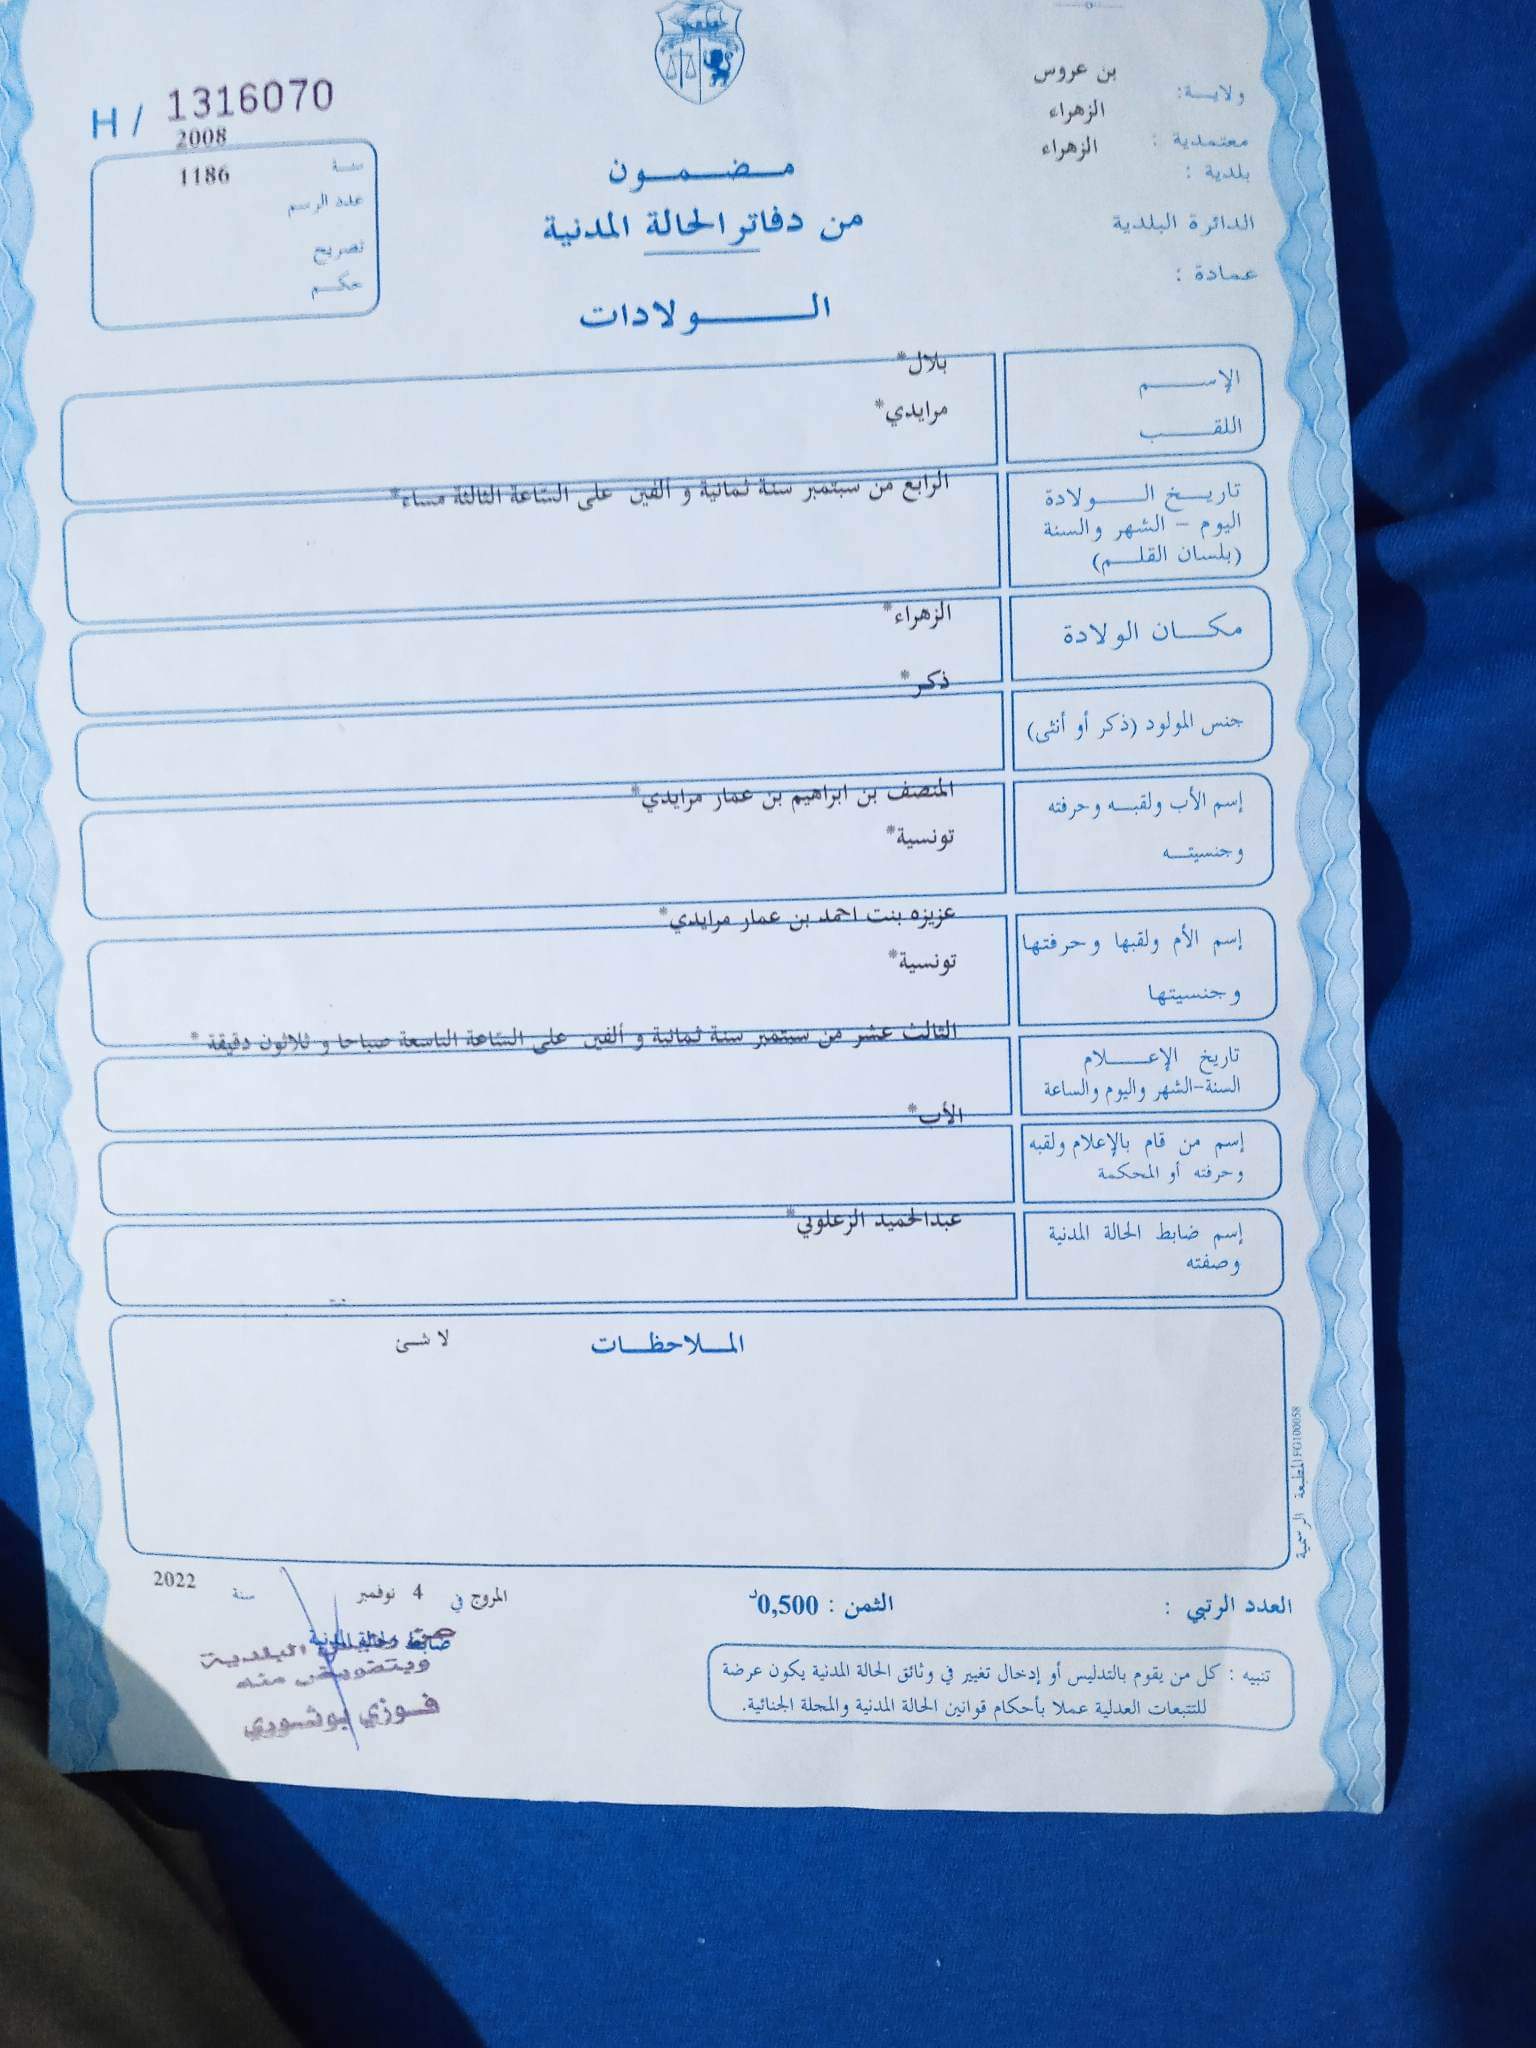 H / 1316070
ولايـة: بن عروس
معتمدية : الزهراء
بلدية : الزهراء
الدائرة البلدية
عمادة :
سنة 2008
عدد الرسم 1186
تصريح
حكم
مضمون
من دفاتر الحالة المدنية
الولادات
الإسم بلال*
اللقب مرايدي*
تاريخ الولادة
اليوم - الشهر والسنة
(بلسان القلم)
الرابع من سبتمبر سنة ثمانية و ألفين على الساعة الثالثة مساء*
مكان الولادة الزهراء*
جنس المولود (ذكر أو أنثى) ذكر*
إسم الأب ولقبه وحرفته المنصف بن ابراهيم بن عمار مرايدي*
وجنسيته تونسية*
إسم الأم ولقبها وحرفتها عزيزه بنت احمد بن عمار مرايدي*
وجنسيتها تونسية*
تاريخ الإعلام
السنة-الشهر واليوم والساعة
الثالث عشر من سبتمبر سنة ثمانية و ألفين على الساعة التاسعة صباحا و ثلاثون دقيقة *
إسم من قام بالإعلام ولقبه
وحرفته أو المحكمة
الأب*
إسم ضابط الحالة المدنية
وصفته
عبدالحميد الزعلوني*
الملاحظات
لا شئ
المطبعة الرسمية FG100058
العدد الرتبي :
الثمن : 0,500د
المروج في 4 نوفمبر سنة 2022
ضابط الحالة المدنية
البلدية
وبتفويض منه
فوزي بوثوري
تنبيه : كل من يقوم بالتدليس أو إدخال تغيير في وثائق الحالة المدنية يكون عرضة
للتتبعات العدلية عملا بأحكام قوانين الحالة المدنية والمجلة الجنائية.